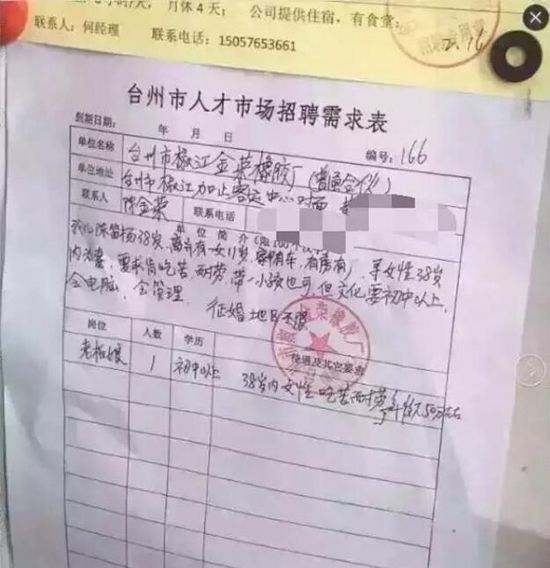 月休4天； 公司提供住宿，有食堂；
联系人：何经理 联系电话：15057653661
2.16
台州市人才市场招聘需求表
到期日期： 年 月 日 编号：166
单位名称 台州市椒江金荣橡胶厂（普通合伙）
单位地址 台州市椒江加止客运中心对面
联系人 陈金荣 联系电话
单位简介（限100个汉字）
38岁，离异有一女11岁，有车，有房，寻女性38岁
内为妻，要求肯吃苦耐劳，带一小孩也可，但文化要初中以上，
会电脑，会管理。 征婚地区不限
岗位 人数 学历 待遇及其它要求
老板娘 1 初中以上 38岁内女性吃苦耐劳年薪50万左右